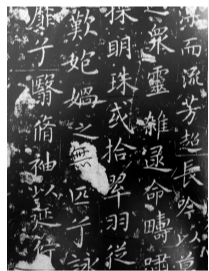 而流芳超長吟以
眾靈雜遝命疇嘯
採明珠或拾翠羽從
歎媧之無匹兮詠
靡兮翳脩袖以延佇